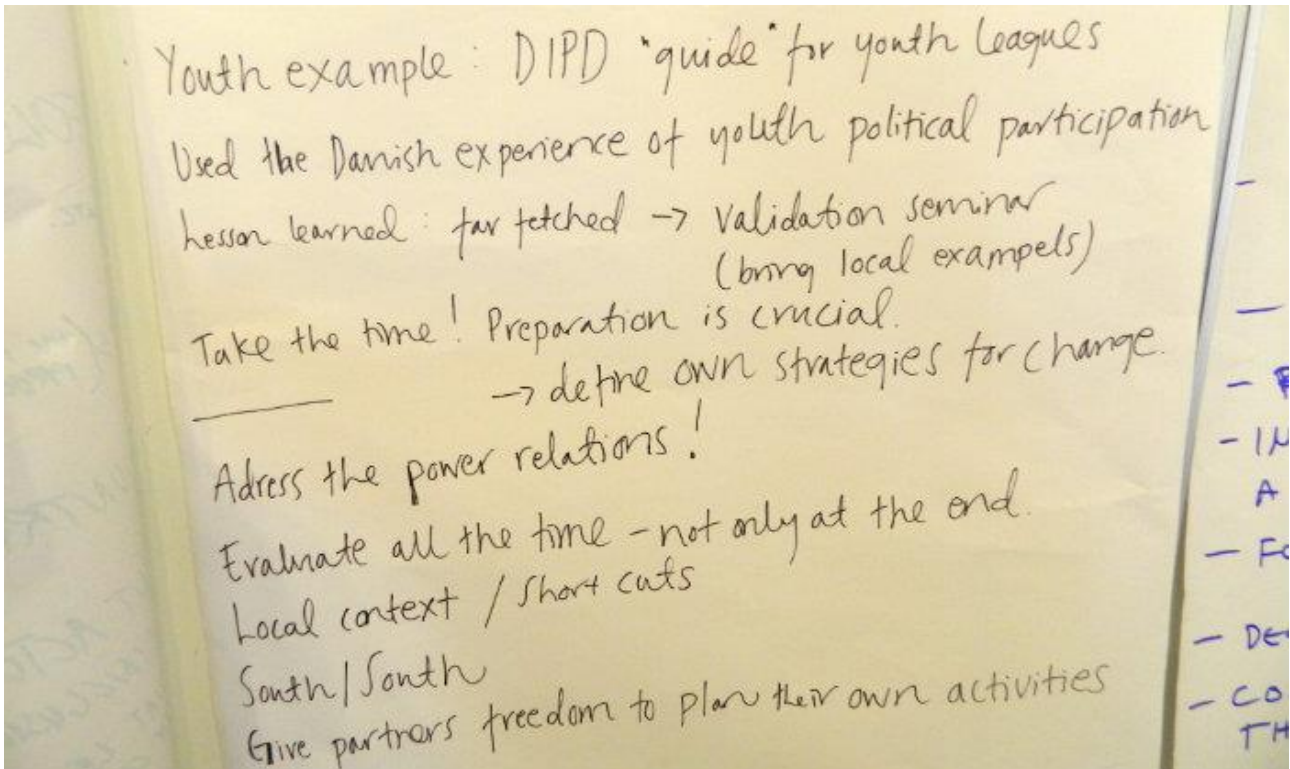 Youth example : DIPD "guide" for youth leagues
Used the Danish experience of youth political participation
Lesson learned : far fetched → Validation seminar
(bring local exampels)
Take the time! Preparation is crucial.
→ define own strategies for change.
Adress the power relations!
Evaluate all the time - not only at the end.
Local context / Short cuts
South/South
Give partners freedom to plan their own activities
- IN
A
- FO
- DE
- CO
TH